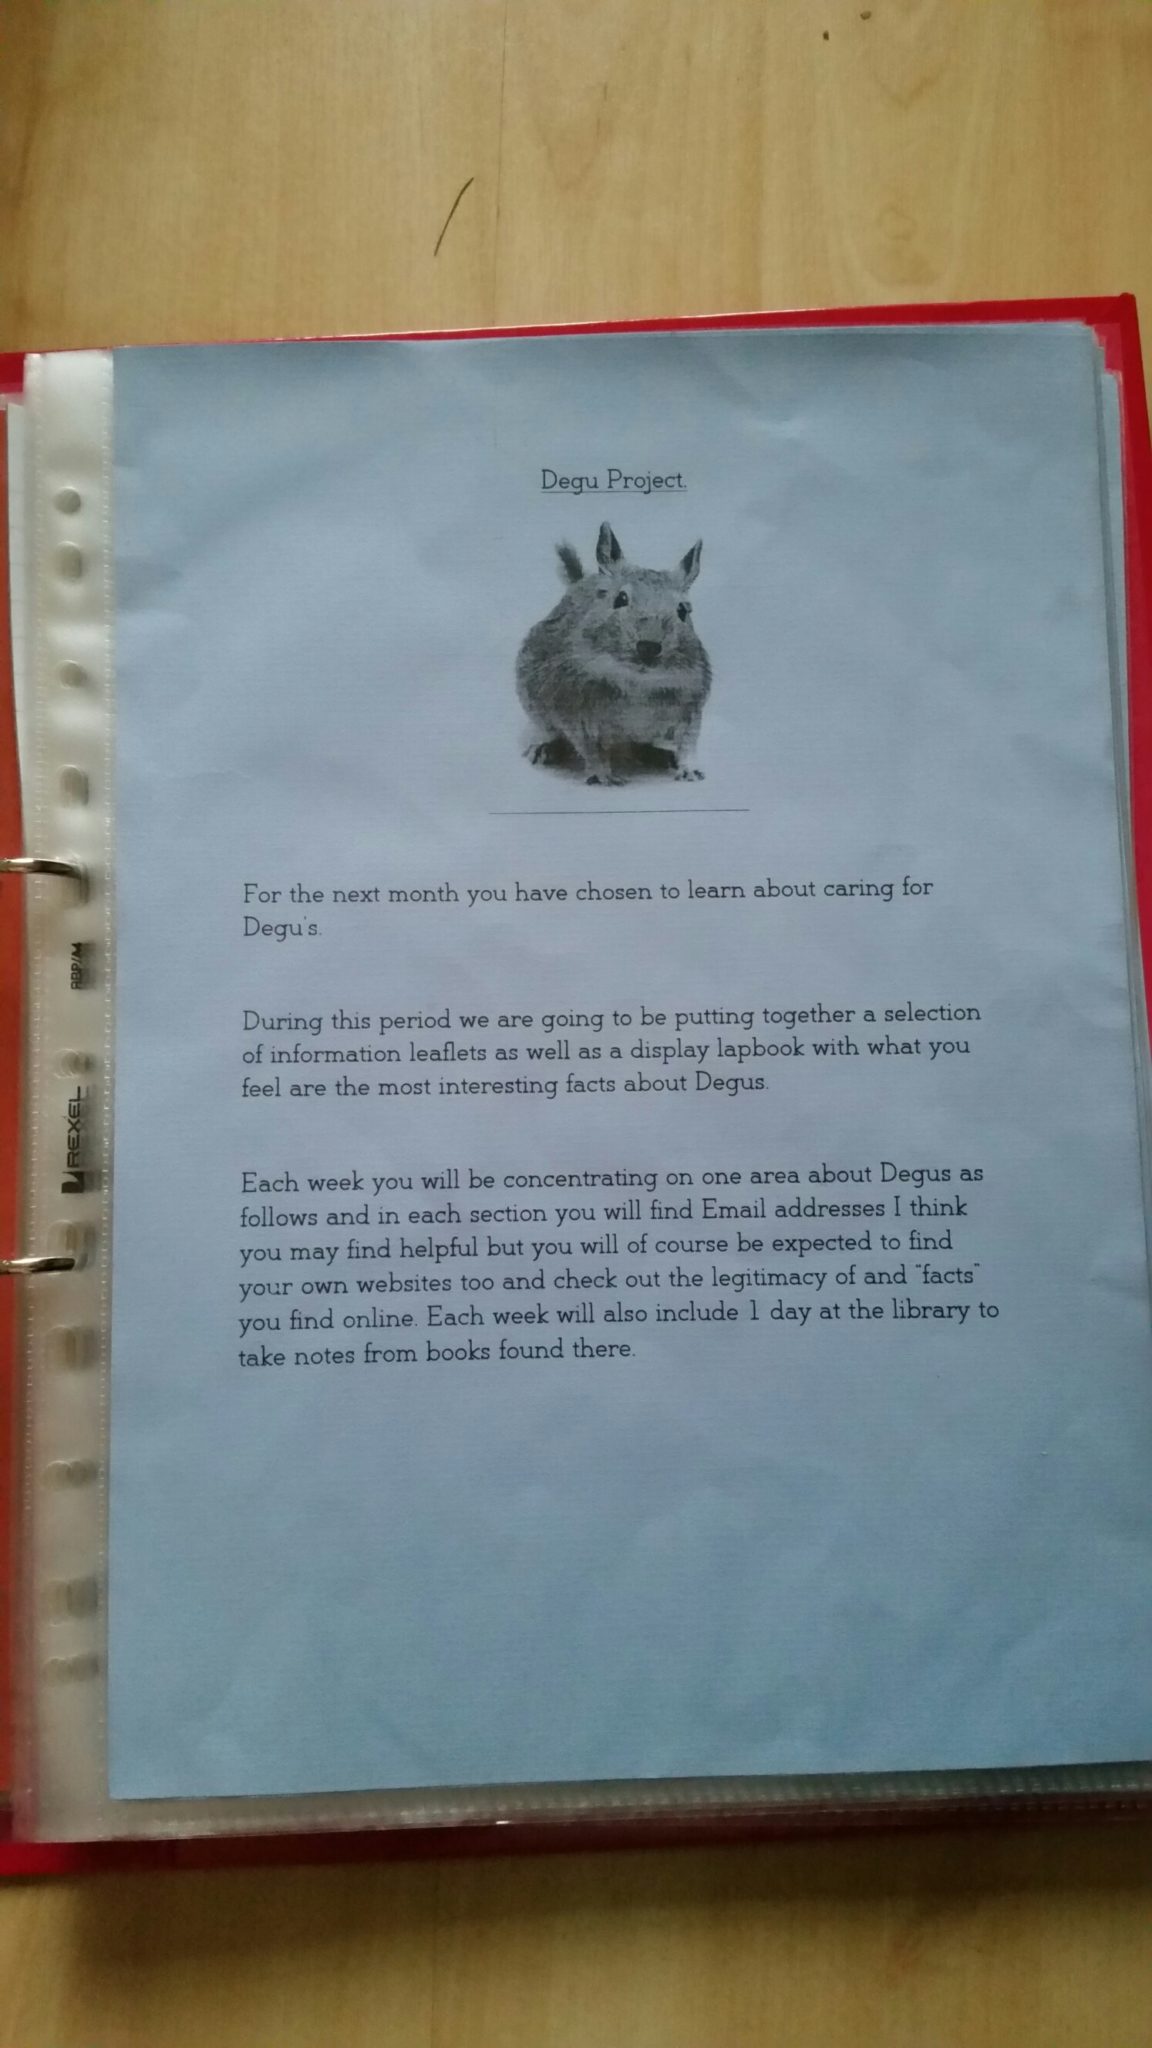 Degu Project.
For the next month you have chosen to learn about caring for
Degu's.
During this period we are going to be putting together a selection
of information leaflets as well as a display lapbook with what you
feel are the most interesting facts about Degus.
Each week you will be concentrating on one area about Degus as
follows and in each section you will find Email addresses I think
you may find helpful but you will of course be expected to find
your own websites too and check out the legitimacy of and "facts"
you find online. Each week will also include 1 day at the library to
take notes from books found there.
ABP/A4
REXEL